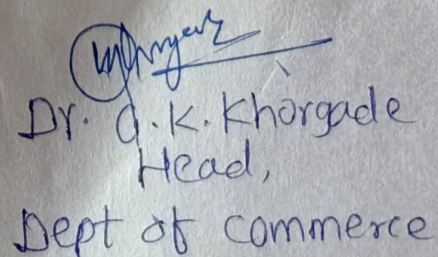 Dr. G.K. Khorgade
Head,
Dept of commerce